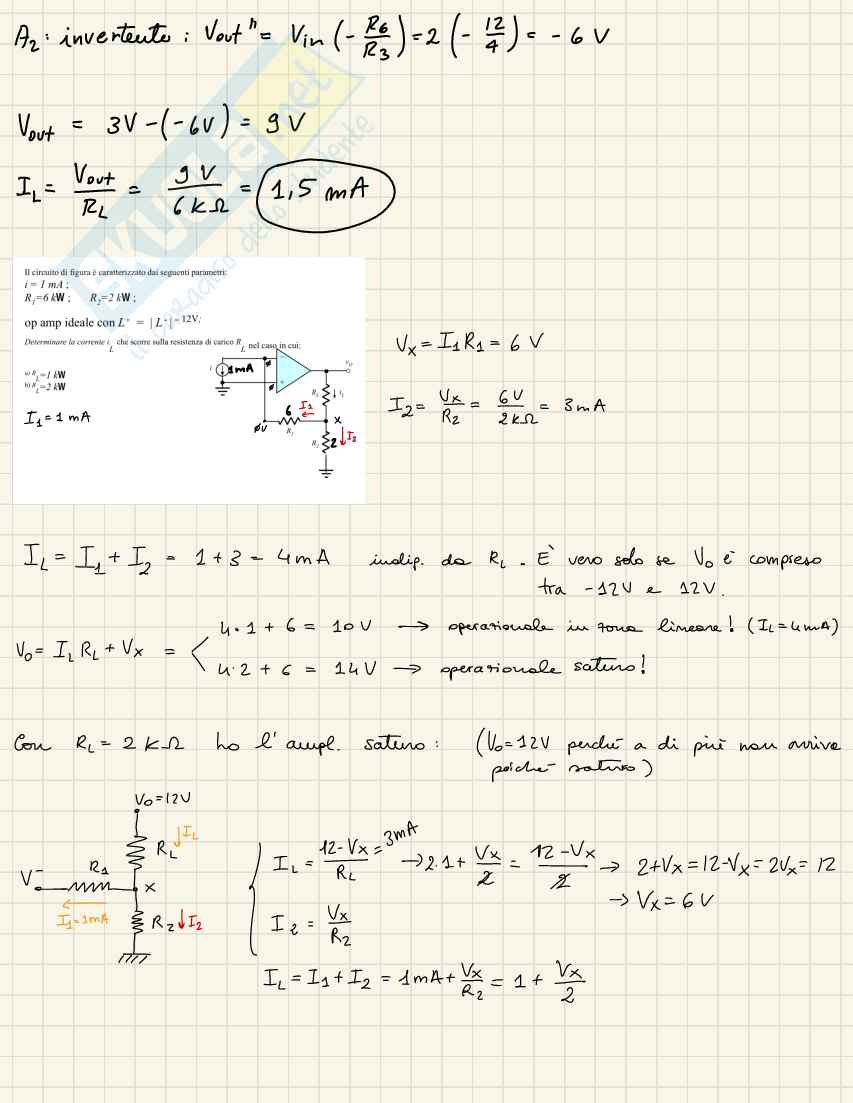 A₂: invertente: Vout" = Vin (- R6/R3) = 2 (- 12/4) = - 6 V
Vout = 3V - (-6V) = 9 V
IL = Vout/RL = 9 V/6 kΩ = 1,5 mA
Il circuito di figura è caratterizzato dai seguenti parametri:
i = 1 mA ;
R1=6 kW ; R2=2 kW ;
op amp ideale con L+ = | L-| = 12V;
Determinare la corrente iL che scorre sulla resistenza di carico RL nel caso in cui:
a) RL=1 kW
b) RL=2 kW
I1 = 1 mA
i 1mA
ø - ø +
vO
RL iL
6 I1
R1
øV
X
R2 2 I2
Vx = I1 R1 = 6 V
I2 = Vx/R2 = 6V/2kΩ = 3mA
IL = I1 + I2 = 1 + 3 = 4mA indip. da RL. È vero solo se Vo è compreso
tra -12V e 12V.
Vo = IL RL + Vx =
4·1 + 6 = 10V → operazionale in zona lineare! (IL=4mA)
4·2 + 6 = 14V → operazionale saturo!
Con RL = 2 kΩ ho l'ampl. saturo: (Vo=12V perché a di più non arriva
poiché saturo)
Vo=12V
RL IL
V⁻ R1 X
I1=1mA R2 I2
IL = 12-Vx/RL = 3mA → 2·1 + Vx/2 = 12-Vx/2 → 2+Vx=12-Vx=2Vx=12
→ Vx=6V
I2 = Vx/R2
IL = I1+I2 = 1mA + Vx/R2 = 1 + Vx/2